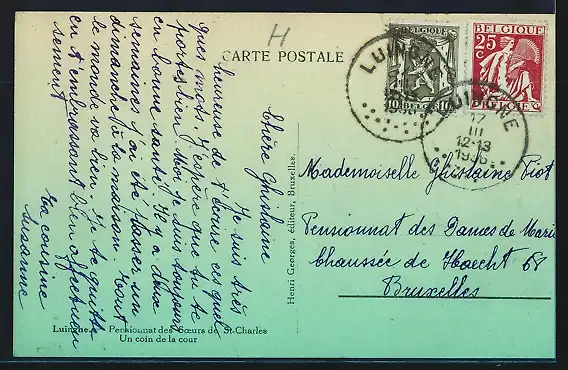 CARTE POSTALE
H
BELGIQUE
10 10
BELGIQUE
25 c
BELGIE
LUINGNE
1936
LUINGNE
17
III
12-13
1936
Chère Ghislaine
Je suis très
heureuse de t'écrire ces quel
ques mots. J'espère que tu te
portes bien. Moi je suis toujours
en bonne santé. Il y a deux
semaines j'ai été passer un
dimanche à la maison. Tout
le monde va bien. Je te quitte
en t'embrassant bien affectueu
sement
Ta cousine
Susanne
Henri Georges, éditeur, Bruxelles.
Mademoiselle Ghislaine Piot
Pensionnat des Dames de Marie
Chaussée de Haecht 68
Bruxelles
Luingne. Pensionnat des Sœurs de St-Charles
Un coin de la cour